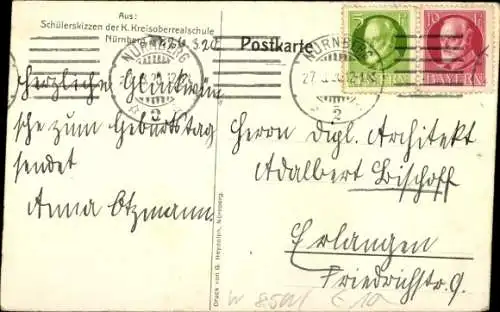 Aus:
Schülerskizzen der K. Kreisoberrealschule
Nürnberg 26.3.20.
Postkarte
NÜRNBERG
2
NÜRNBERG
27.
2
5 PF
BAYERN
10 PF
BAYERN
Herzlichen Glückwün-
sche zum Geburtstag
sendet
Anna Otzmann.
Herrn Dipl. Architekt
Adalbert Bischoff
Erlangen
Friedrichstr. 9.
Druck von G. Heydolph, Nürnberg.